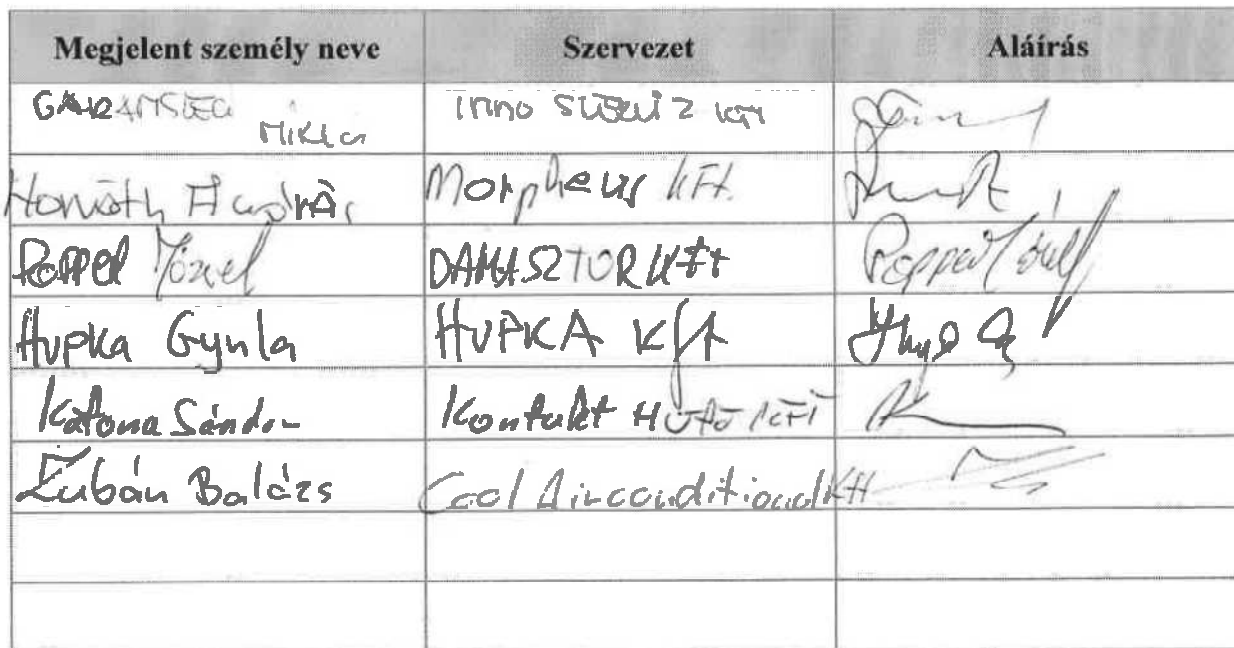 Megjelent személy neve Szervezet Aláírás
Miklós Inno Szerviz Kft
Horváth András Morpheus Kft.
Poppel József DAMASZTOR Kft Poppel József
Hupka Gyula HUPKA Kft
Katona Sándor Kontakt Hűtő Kft
Zubán Balázs Cool Airconditional Kft